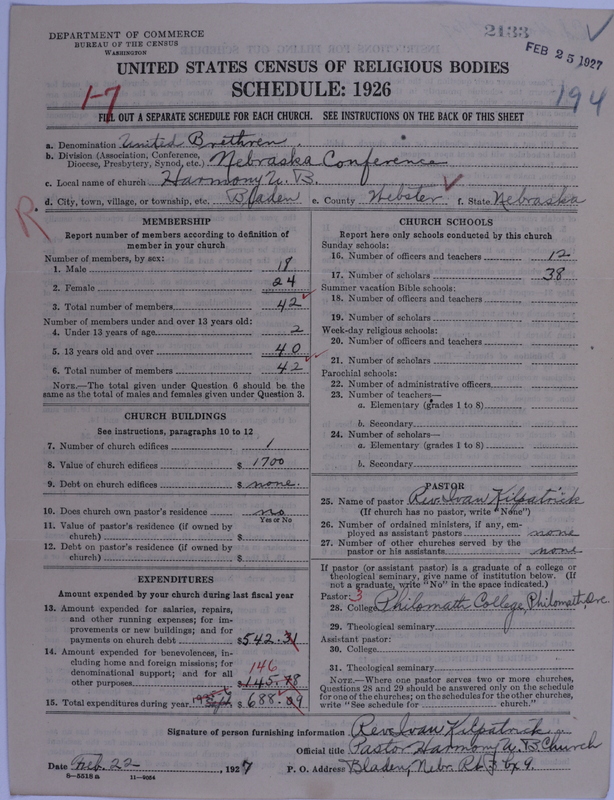 DEPARTMENT OF COMMERCE
BUREAU OF THE CENSUS
WASHINGTON
2133
FEB 25 1927
UNITED STATES CENSUS OF RELIGIOUS BODIES
SCHEDULE: 1926
1-7
194
FILL OUT A SEPARATE SCHEDULE FOR EACH CHURCH. SEE INSTRUCTIONS ON THE BACK OF THIS SHEET
a. Denomination United Brethren
b. Division (Association, Conference, Diocese, Presbytery, Synod, etc.) Nebraska Conference
c. Local name of church Harmony U. B.
d. City, town, village, or township, etc. Bladen e. County Webster f. State Nebraska
R
MEMBERSHIP
Report number of members according to definition of
member in your church
Number of members, by sex:
1. Male 18
2. Female 24
3. Total number of members 42
Number of members under and over 13 years old:
4. Under 13 years of age 2
5. 13 years old and over 40
6. Total number of members 42
NOTE.—The total given under Question 6 should be the
same as the total of males and females given under Question 3.
CHURCH BUILDINGS
See instructions, paragraphs 10 to 12
7. Number of church edifices 1
8. Value of church edifices $ 1700
9. Debt on church edifices $ none.
10. Does church own pastor's residence no
Yes or No
11. Value of pastor's residence (if owned by
church) $
12. Debt on pastor's residence (if owned by
church) $
EXPENDITURES
Amount expended by your church during last fiscal year
13. Amount expended for salaries, repairs,
and other running expenses; for im-
provements or new buildings; and for
payments on church debt $542.31
14. Amount expended for benevolences, in-
cluding home and foreign missions; for
denominational support; and for all
other purposes $145.78
146
15. Total expenditures during year $688.09
CHURCH SCHOOLS
Report here only schools conducted by this church
Sunday schools:
16. Number of officers and teachers 12
17. Number of scholars 38
Summer vacation Bible schools:
18. Number of officers and teachers
19. Number of scholars
Week-day religious schools:
20. Number of officers and teachers
21. Number of scholars
Parochial schools:
22. Number of administrative officers
23. Number of teachers—
a. Elementary (grades 1 to 8)
b. Secondary
24. Number of scholars—
a. Elementary (grades 1 to 8)
b. Secondary
PASTOR
25. Name of pastor Rev. Ivan Kilpatrick
(If church has no pastor, write "None")
26. Number of ordained ministers, if any, em-
ployed as assistant pastors none
27. Number of other churches served by the
pastor or his assistants none
If pastor (or assistant pastor) is a graduate of a college or
theological seminary, give name of institution below. (If
not a graduate, write "No" in the space indicated.)
Pastor: 3
28. College Philomath College, Philomath, Ore.
29. Theological seminary
Assistant pastor:
30. College
31. Theological seminary
NOTE.—Where one pastor serves two or more churches,
Questions 28 and 29 should be answered only on the schedule
for one of the churches; on the schedules for the other churches,
write "See schedule for church."
Signature of person furnishing information Rev. Ivan Kilpatrick
Official title Pastor Harmony U. B. Church
Date Feb. 22, 1927 P. O. Address Bladen, Nebr. Rt. 3 Bx 9.
8—5518a 11—9064